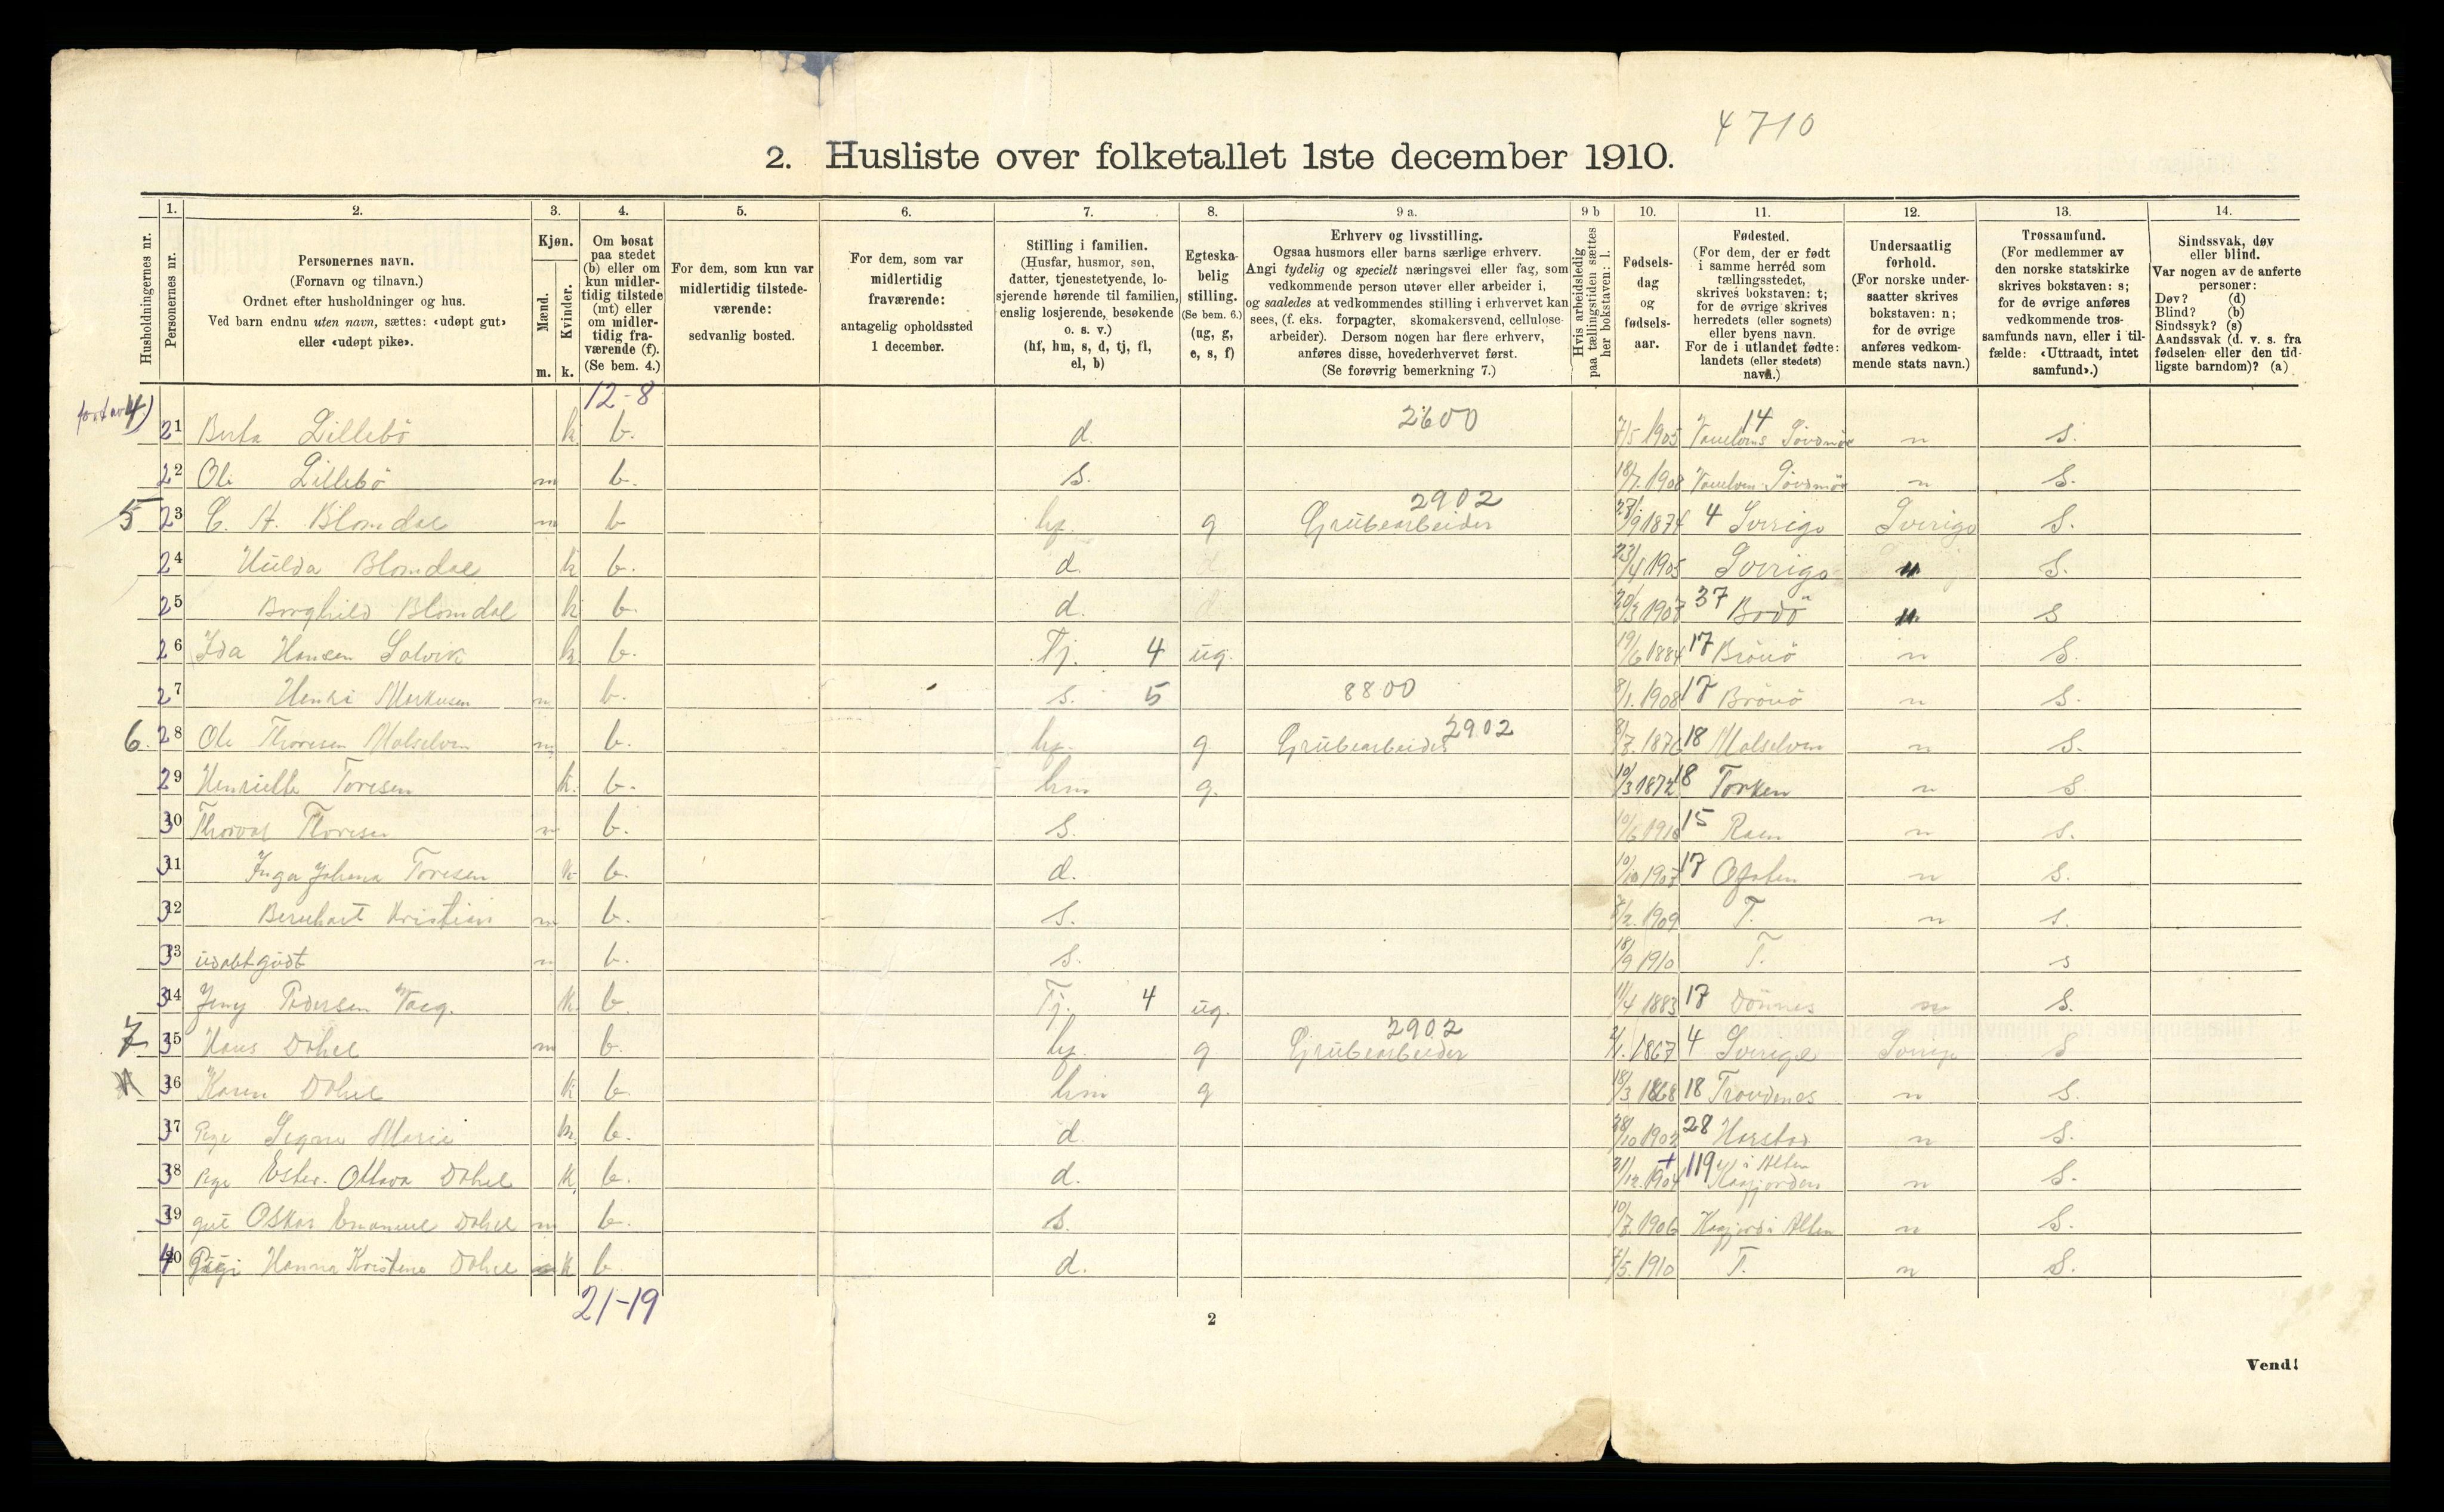 4710
2. Husliste over folketallet 1ste december 1910.
Husholdningernes nr.
1.
Personernes nr.
2.
Personernes navn.
(Fornavn og tilnavn.)
Ordnet efter husholdninger og hus.
Ved barn endnu uten navn, sættes: «udøpt gut»
eller «udøpt pike».
3.
Kjøn.
Mænd.
Kvinder.
m. k.
4.
Om bosat
paa stedet
(b) eller om
kun midler-
tidig tilstede
(mt) eller
om midler-
tidig fra-
værende (f).
(Se bem. 4.)
5.
For dem, som kun var
midlertidig tilstede-
værende:
sedvanlig bosted.
6.
For dem, som var
midlertidig
fraværende:
antagelig opholdssted
1 december.
7.
Stilling i familien.
(Husfar, husmor, søn,
datter, tjenestetyende, lo-
sjerende hørende til familien,
enslig losjerende, besøkende
o. s. v.)
(hf, hm, s, d, tj, fl,
el, b)
8.
Egteska-
belig
stilling.
(Se bem. 6.)
(ug, g,
e, s, f)
9 a.
Erhverv og livsstilling.
Ogsaa husmors eller barns særlige erhverv.
Angi tydelig og specielt næringsvei eller fag, som
vedkommende person utøver eller arbeider i,
og saaledes at vedkommendes stilling i erhvervet kan
sees, (f. eks. forpagter, skomakersvend, cellulose-
arbeider). Dersom nogen har flere erhverv,
anføres disse, hovederhvervet først.
(Se forøvrig bemerkning 7.)
9 b
Hvis arbeidsledig
paa tællingstiden sættes
her bokstaven: l.
10.
Fødsels-
dag
og
fødsels-
aar.
11.
Fødested.
(For dem, der er født
i samme herred som
tællingsstedet,
skrives bokstaven: t;
for de øvrige skrives
herredets (eller sognets)
eller byens navn.
For de i utlandet fødte:
landets (eller stedets)
navn.)
12.
Undersaatlig
forhold.
(For norske under-
saatter skrives
bokstaven: n;
for de øvrige
anføres vedkom-
mende stats navn.)
13.
Trossamfund.
(For medlemmer av
den norske statskirke
skrives bokstaven: s;
for de øvrige anføres
vedkommende tros-
samfunds navn, eller i til-
fælde: «Uttraadt, intet
samfund».)
14.
Sindssvak, døv
eller blind.
Var nogen av de anførte
personer:
Døv? (d)
Blind? (b)
Sindssyk? (s)
Aandssvak (d. v. s. fra
fødselen eller den tid-
ligste barndom)? (a)
12-8
21 Berta Lillebö k b. d. 2600 7/5 1905 14 Söndmör n S.
22 Ole Lillebö m b. S. 18/7 1908 Söndmör n S.
5 23 C. A. Blomdal m b hf. g Grubearbeider 2902 1874 4 Sverige Sverige S.
24 Hulda Blomdal k b. d. 23/4 1905 Sverige n S.
25 Borghild Blomdal k b. d. 1907 37 Bodö n S
26 Ida Hansen Solvik k. b. Tj. 4 ug. 19/6 1884 17 Brönö n S.
27 Henri Markusen m b. s. 5 8800 8/1. 1908 17 Brönö n S.
6. 28 Ole Thoresen Malselven m b. hf. g Grubearbeider 2902 1876 18 Malselven n S.
29 Henriette Toresen k. b. hm g. 10/3 1872 18 Torken n S
30 Thorval Thoresen m b. S. 1910 15 Raen n S.
31 Inga Johena Toresen k b. d. 10/10 1907 17 Ofoten n S.
32 Bernhart Kristian m b. S. 1909 T. n s.
33 udøbt gudt m b. S. 18/9 1910 T. s
34 Jeny Pedersen k. b. Tj. 4 ug. 11/4 1883 17 Dönnes n S.
7 35 Hans Dahel m b. hf. g Grubearbeider 2902 1867 4 Sverige Sverige S
36 Karen Dahel k b. hm g 18/3 1868 18 Trondenes n S.
37 Pige Signe Marie k. b. d. 28/10 1902 28 Harstad n S.
38 Pige Ester. Ottava Dahel k. b. d. 31/12. 1904 119 i Alten Kaafjorden n S.
39 gut Oskar Emanuel Dahel m b. S. 1906 Kaafjord i Alten n S.
40 Pigi Hanna Kristine Dahel k b. d. 1910 T. n S.
21-19
2
Vend!